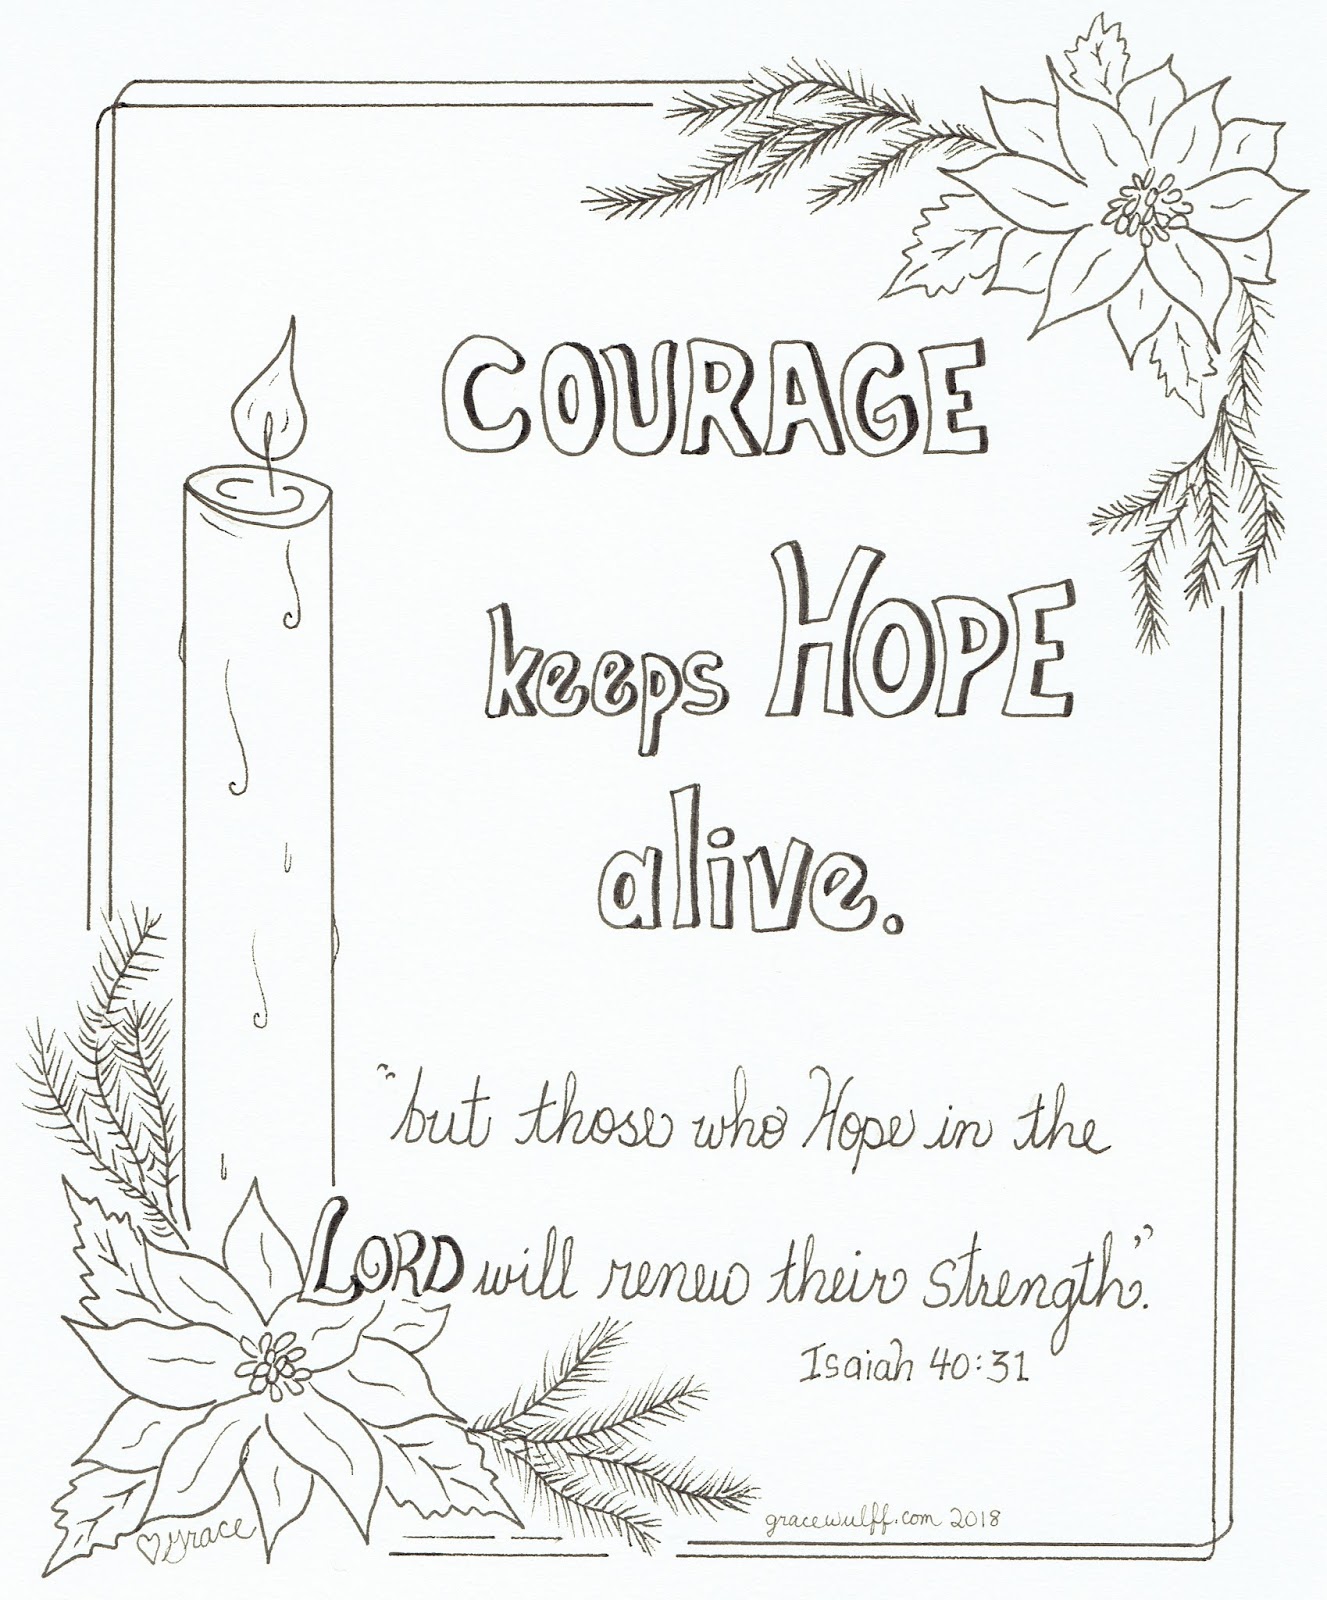 COURAGE
keeps HOPE
alive.
"but those who Hope in the
LORD will renew their strength."
Isaiah 40:31
gracewulff.com 2018
♡Grace